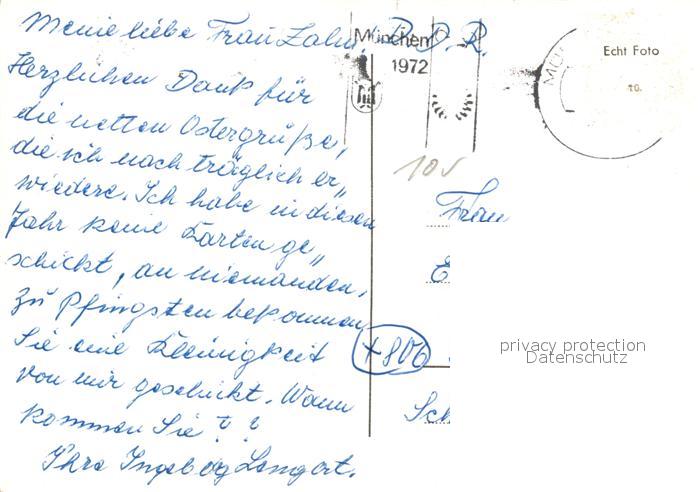 Meine liebe Frau Zahn! B. D. R.
München
1972
Echt Foto
Herzlichen Dank für
die netten Ostergrüße,
die ich nach träglich er„
wiedere. Ich habe in diesen
Jahr keine Karten ge„
schickt, an niemanden.
Zu Pfingsten bekommen
Sie eine Kleinigkeit
von mir geschickt. Wann
kommen Sie ? ?
Ihre Ingeborg Langert.
10
Frau
E
+806
privacy protection
Datenschutz
Sch